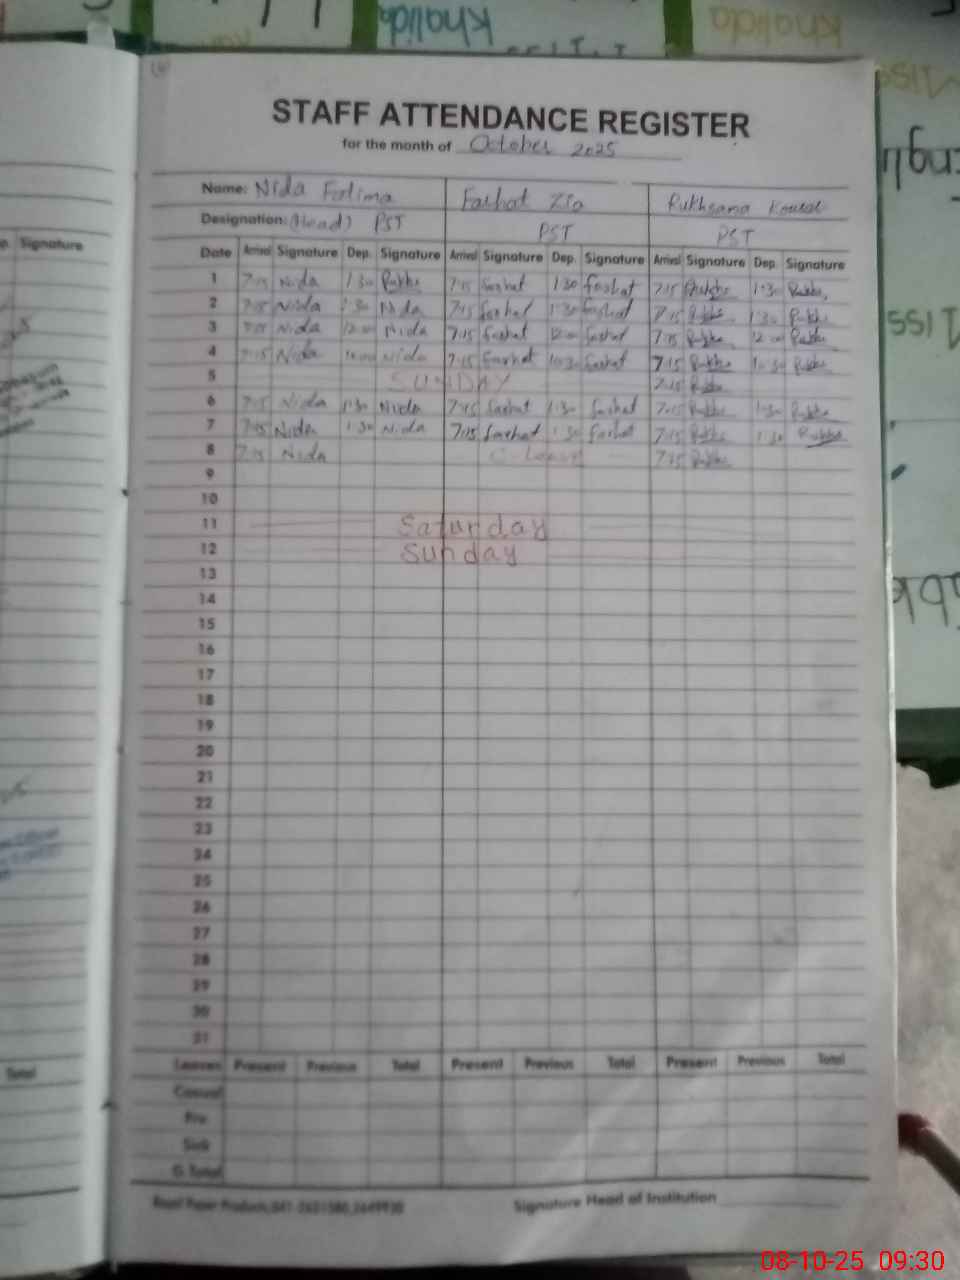 Khalida
Khalida
STAFF ATTENDANCE REGISTER
for the month of October 2025
Name: Nida Fatima Farhat Zia Rukhsana
Designation: (Head) PST PST PST
Signature
Date Arrival Signature Dep. Signature Arrival Signature Dep. Signature Arrival Signature Dep. Signature
1 7:15 Nida 1:30 7:15 Farhat 1:30 Farhat 7:15 1:30 Rukhs
2 7:15 Nida 1:30 Nida 7:15 Farhat 1:30 Farhat 7:15 Rukhs 1:30 Rukhs
3 7:15 Nida 12:00 Nida 7:15 Farhat 12:00 Farhat 7:15 Rukhs 12:00 Rukhs
4 7:15 Nida Nida 7:15 Farhat 10:30 Farhat 7:15 Rukhs 10:30 Rukhs
5 SUNDAY 7:15 Rukhs
6 7:15 Nida 1:30 Nida 7:15 Farhat 1:30 Farhat 7:15 Rukhs 1:30 Rukhs
7 7:15 Nida 1:30 Nida 7:15 Farhat 1:30 Farhat 7:15 Rukhs 1:30 Rukhs
8 7:15 Nida 7:15 Rukhs
9
10
11 Saturday
12 Sunday
13
14
15
16
17
18
19
20
21
22
23
24
25
26
27
28
29
30
31
Total
Leaves Present Previous Total Present Previous Total Present Previous Total
Casual
Sick
G. Total
Signature Head of Institution
08-10-25 09:30